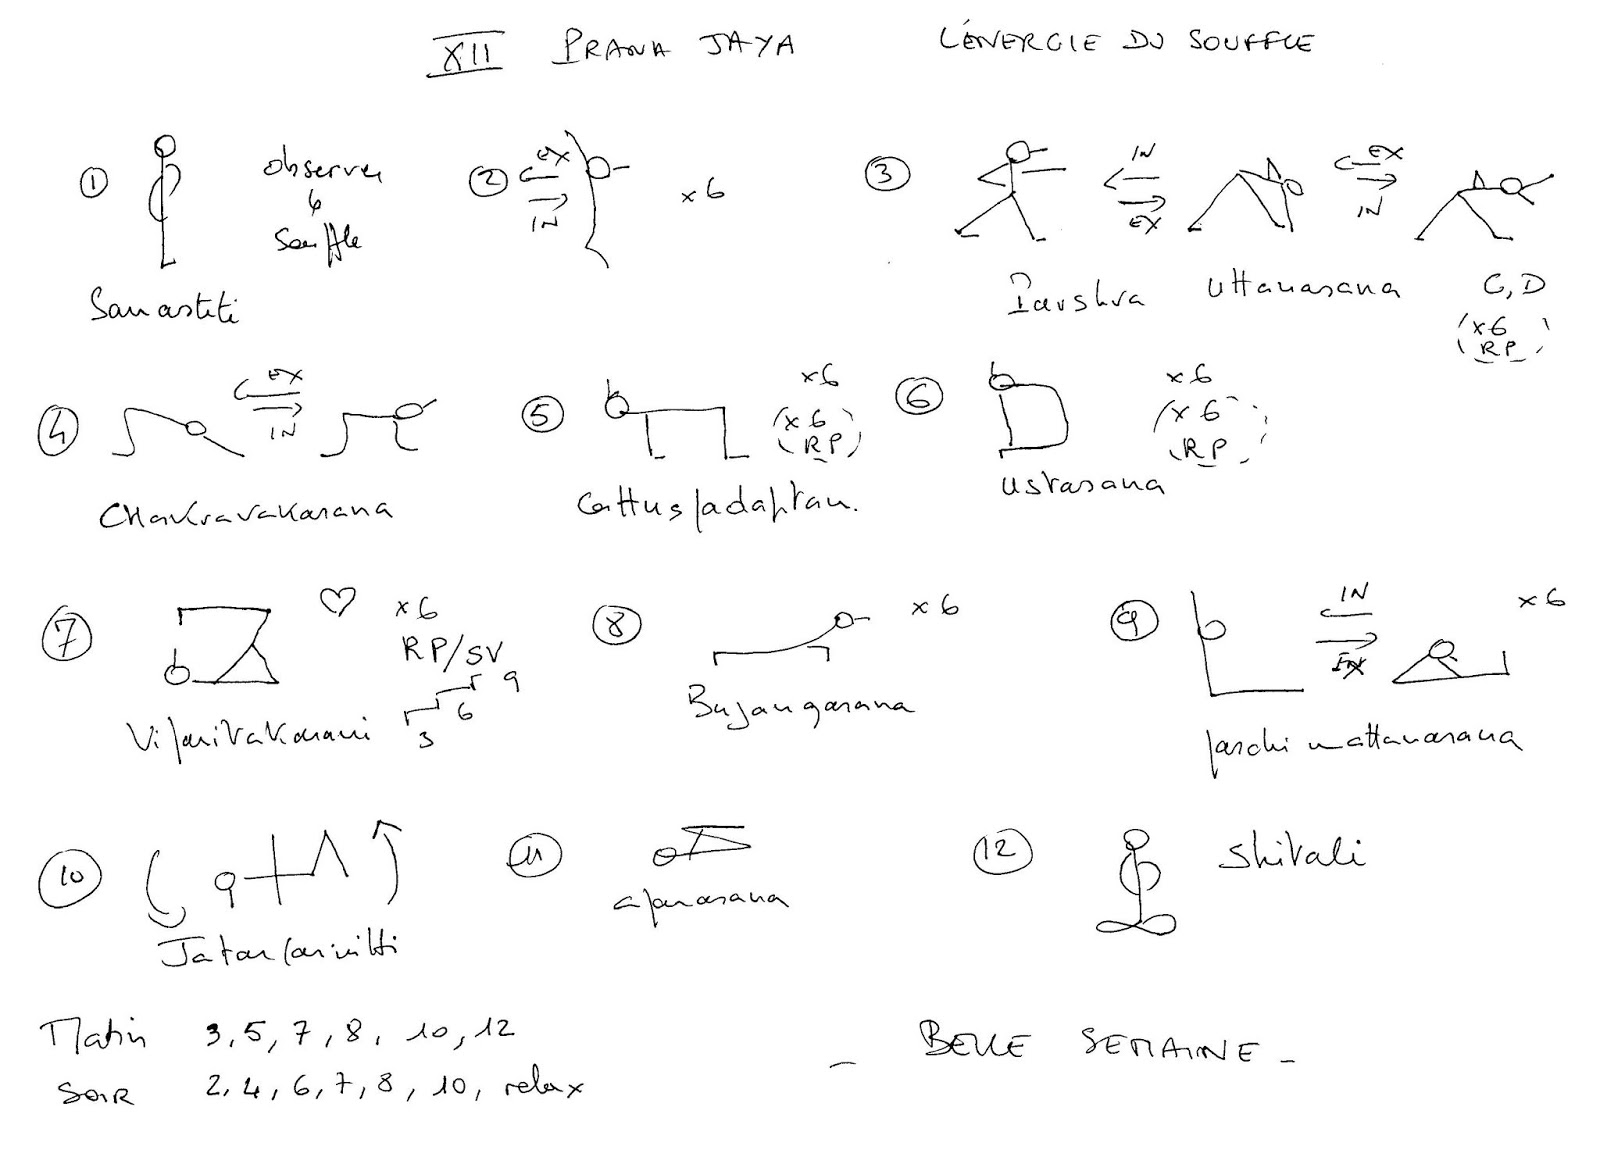 XII PRANA JAYA L'ÉNERGIE DU SOUFFLE
1 observer
le
souffle
Samastiti
2 EX
IN
x 6
3 IN
EX
EX
IN
Parshva Uttanasana G, D
(x6
RP)
4 EX
IN
Chakravakasana
5 x6
(x 6
RP)
Cattuspadapitam.
6 x6
(x 6
RP)
Ustrasana
7 ♡ x6
RP/SV
3 6 9
Viparitakarani
8 x 6
Bujangasana
9 IN
EX
x 6
paschimattanasana
10
Jataraparivitti
11
apanasana
12 Shitali
Matin 3, 5, 7, 8, 10, 12
Soir 2, 4, 6, 7, 8, 10, relax
– BELLE SEMAINE –